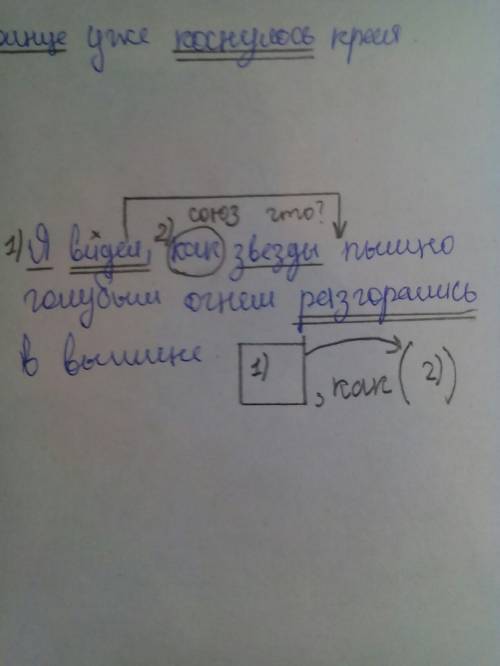 уже коснулось края
союз что?
1) Я видел, 2) как звезды пышно
голубым огнем разгорались
в вышине
1) , как (2)